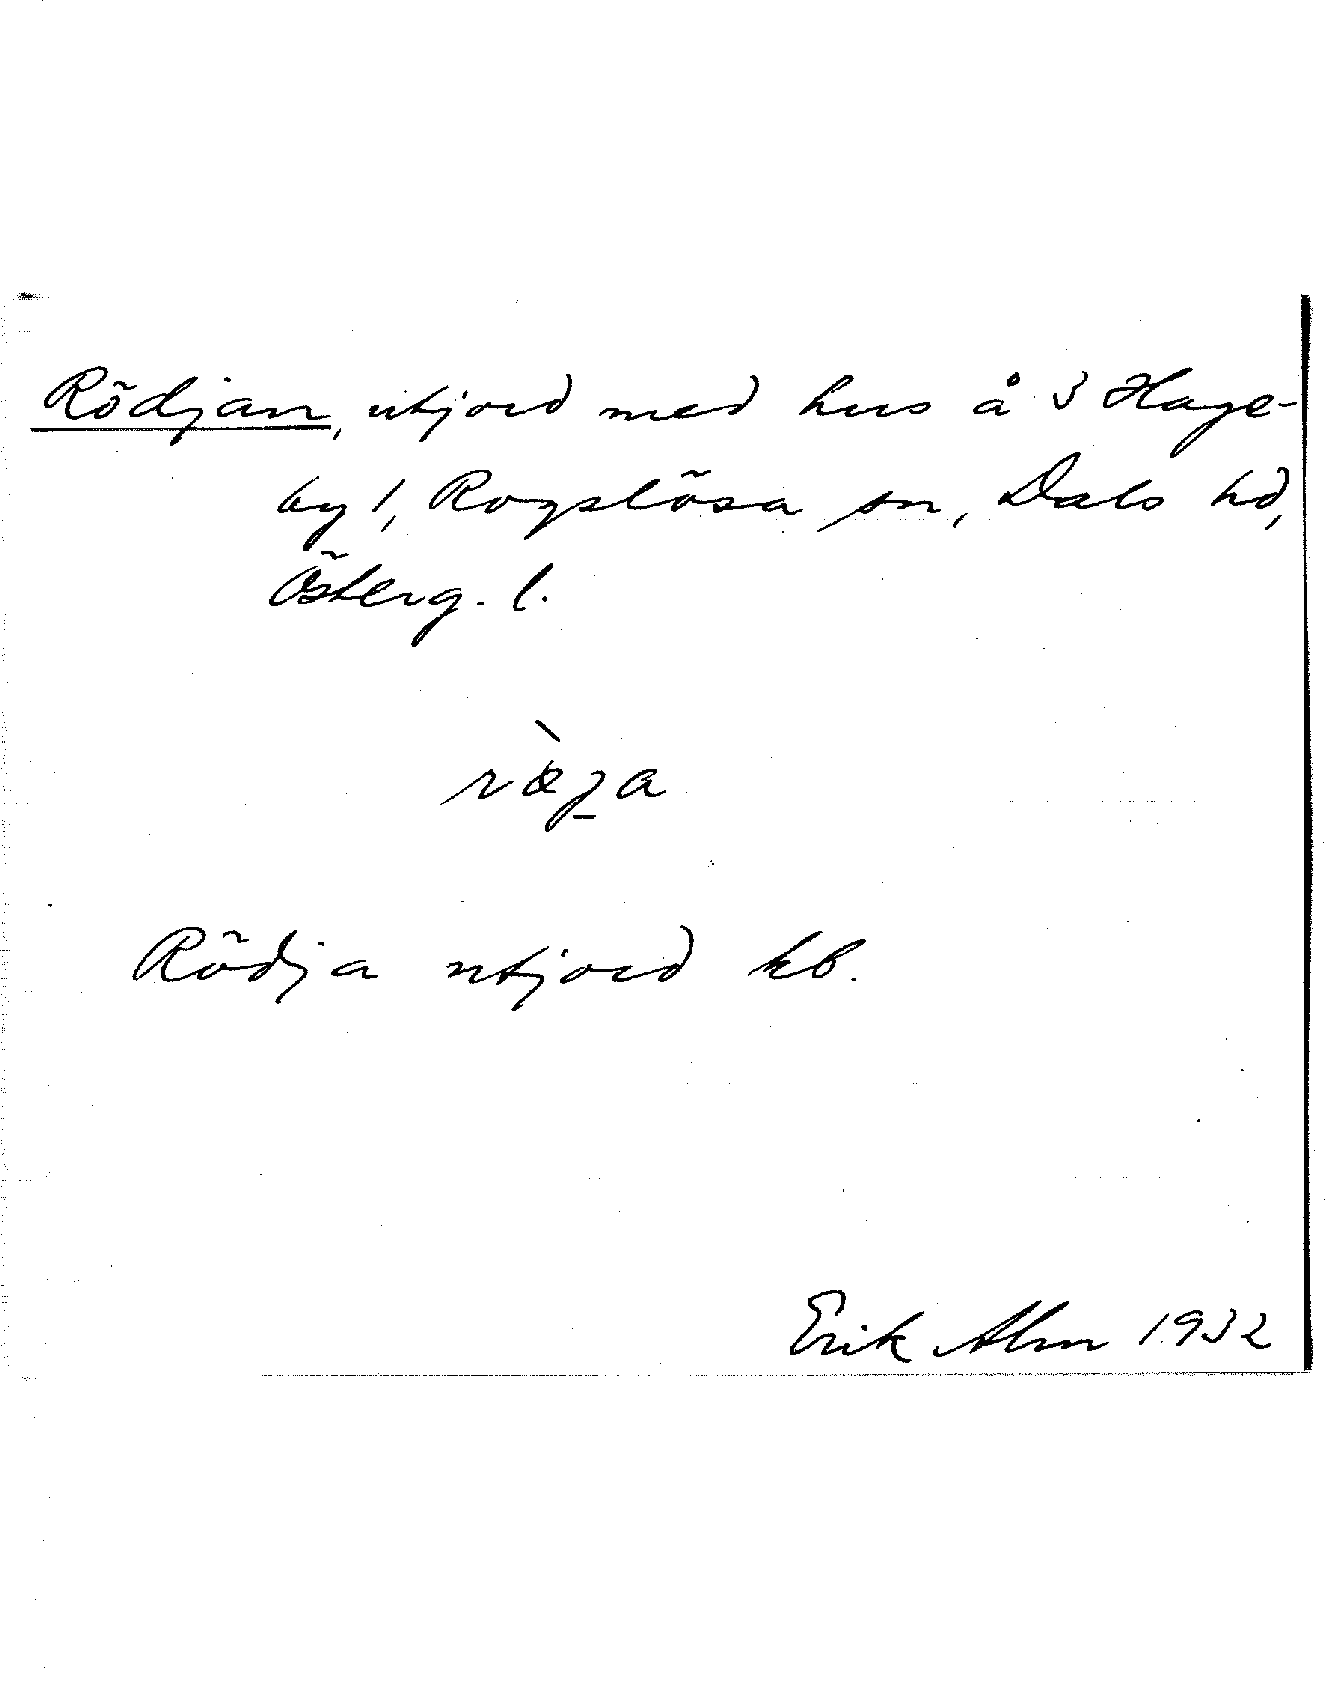 Rödjan, utjord med hus å 3 Hage-
by 1, Rogslösa sn, Dals hd,
Österg. l.
Rödja utjord kb.
Erik Alm 1932